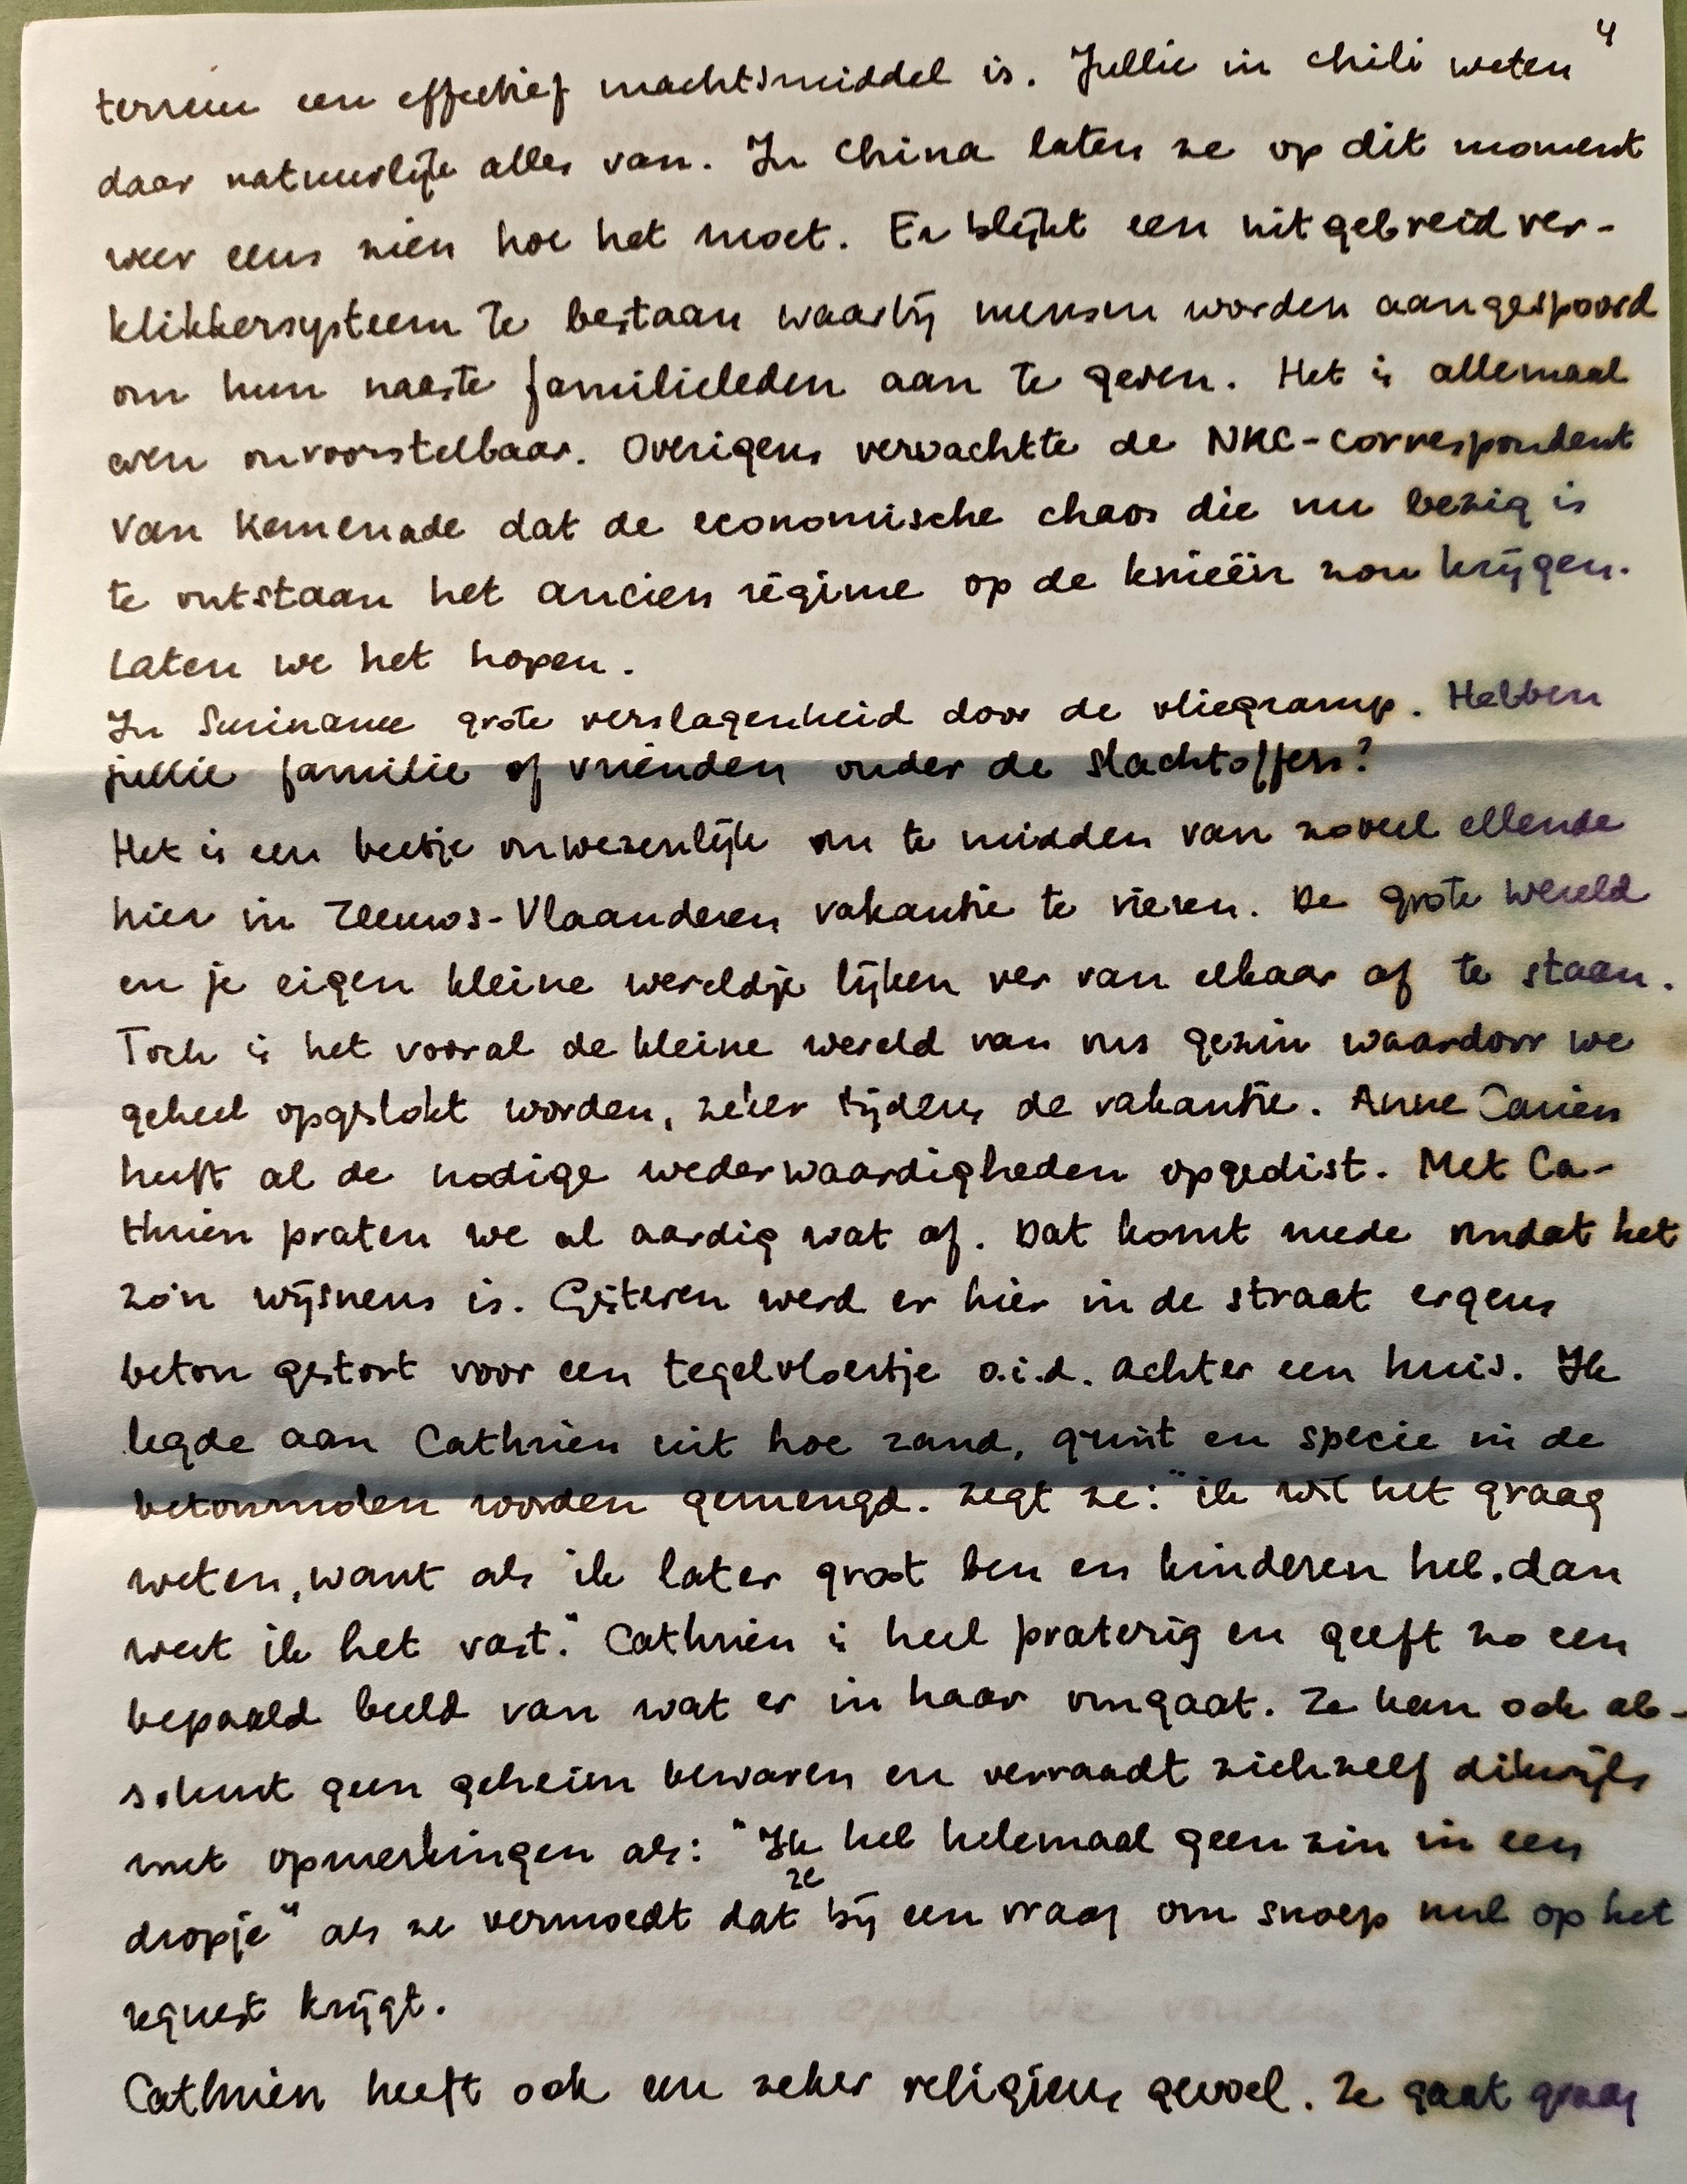 4
terreur een effectief machtsmiddel is. Jullie in Chili weten
daar natuurlijk alles van. In China laten ze op dit moment
weer eens zien hoe het moet. Er blijkt een uitgebreid ver-
klikkersysteem te bestaan waarbij mensen worden aangespoord
om hun naaste familieleden aan te geven. Het is allemaal
even onvoorstelbaar. Overigens verwachtte de NRC-correspondent
van Kemenade dat de economische chaos die nu bezig is
te ontstaan het ancien régime op de knieën zou krijgen.
Laten we het hopen.
In Suriname grote verslagenheid door de vliegramp. Hebben
jullie familie of vrienden onder de slachtoffers?
Het is een beetje onwezenlijk om te midden van zoveel ellende
hier in Zeeuws-Vlaanderen vakantie te vieren. De grote wereld
en je eigen kleine wereldje lijken ver van elkaar af te staan.
Toch is het vooral de kleine wereld van ons gezin waardoor we
geheel opgeslokt worden, zeker tijdens de vakantie. Anne Carien
heeft al de nodige wederwaardigheden opgedist. Met Ca-
thrien praten we al aardig wat af. Dat komt mede omdat het
zo'n wijsneus is. Gisteren werd er hier in de straat ergens
beton gestort voor een tegelvloertje o.i.d. achter een huis. Ik
legde aan Cathrien uit hoe zand, grint en specie in de
betonmolen worden gemengd. Zegt ze: "ik wil het graag
weten, want als ik later groot ben en kinderen heb, dan
weet ik het vast." Cathrien is heel praterig en geeft zo een
bepaald beeld van wat er in haar omgaat. Ze kan ook ab-
soluut geen geheim bewaren en verraadt zichzelf dikwijls
met opmerkingen als: "Ik heb helemaal geen zin in een
dropje" als ze vermoedt dat ze bij een vraag om snoep nul op het
request krijgt.
Cathrien heeft ook een zeker religieus gevoel. Ze gaat graag